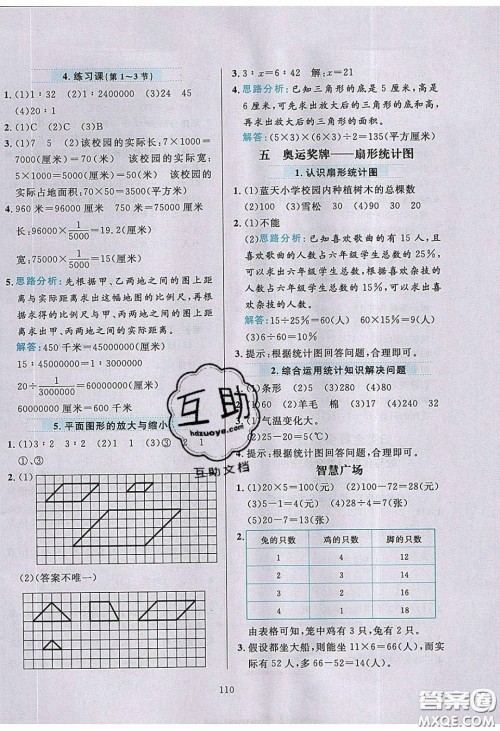 4. 练习课(第1~3节)
1. (1)1∶32 (2)1∶2400000 (3)24 45
(4)20∶1
2. (1)C (2)B (3)C
3. (1)7 5 (2)该校园的实际长:7×1000=
7000(厘米)=70(米) 该校园的实际宽:
5×1000=5000(厘米)=50(米) 该校园的实
际占地面积:70×50=3500(平方米)
4. 960米=96000厘米 750米=75000厘米
长:96000×1/5000=19.2(厘米)
宽:75000×1/5000=15(厘米)
5. 思路分析:先根据甲、乙两地之间的图上距
离与实际距离求出这幅地图的比例尺,再根
据求得的比例尺与甲、丙两地之间的图上距
离求出甲、丙两地之间的实际距离。
解答:450千米=45000000厘米
15∶45000000=1∶3000000
20÷1/3000000=60000000(厘米)
60000000厘米=600千米
5. 平面图形的放大与缩小
①、③
2. (1)
(2)(答案不唯一)
3. 3∶x=6∶42 解:x=21
4. 思路分析:已知三角形的底是5厘米,高是
6厘米,可先求出放大后的三角形的底和高,
再求出放大后的三角形的面积。
解答:(5×3)×(6×3)÷2=135(平方厘米)
五 奥运奖牌——扇形统计图
1. 认识扇形统计图
1. (1)蓝天小学校园内种植树木的总棵数
(2)100 (3)雪松 (4)90 30 30
2. (1)不能
(2)思路分析:已知喜欢歌曲的有15人,且
喜欢歌曲的人数占六年级学生总数的25%,
可求出六年级学生总数。根据喜欢杂技的
人数占六年级学生总数的10%,可求出喜欢
杂技的人数。
解答:15÷25%=60(人) 60×10%=6(人)
3. 提示:根据统计图回答问题,合理即可。
2. 综合运用统计知识解决问题
1. (1)条形 (2)45 (3)280 (4)80
2. (1)20 (2)羊毛 棉 (3)17.5 (4)340
3. (1)气温变化大。
4. 提示:根据统计图回答问题,合理即可。
智慧广场
1. (1)20×5=100(元) (2)100-72=28(元)
(3)5-1=4(元) (4)28÷4=7(张)
(5)20-7=13(张)
2.
兔的只数 鸡的只数 脚的只数
1 4 12
2 3 14
3 2 16
4 1 18
由表格可知,笼中鸡有3只,兔有2只。
3. 假设都坐大船,能坐11×6=66(人),而实
际坐了52人,多出66-52=14(人)。
110
互助
hdzuoye.com
互助文档
答案圈
MXQE.COM